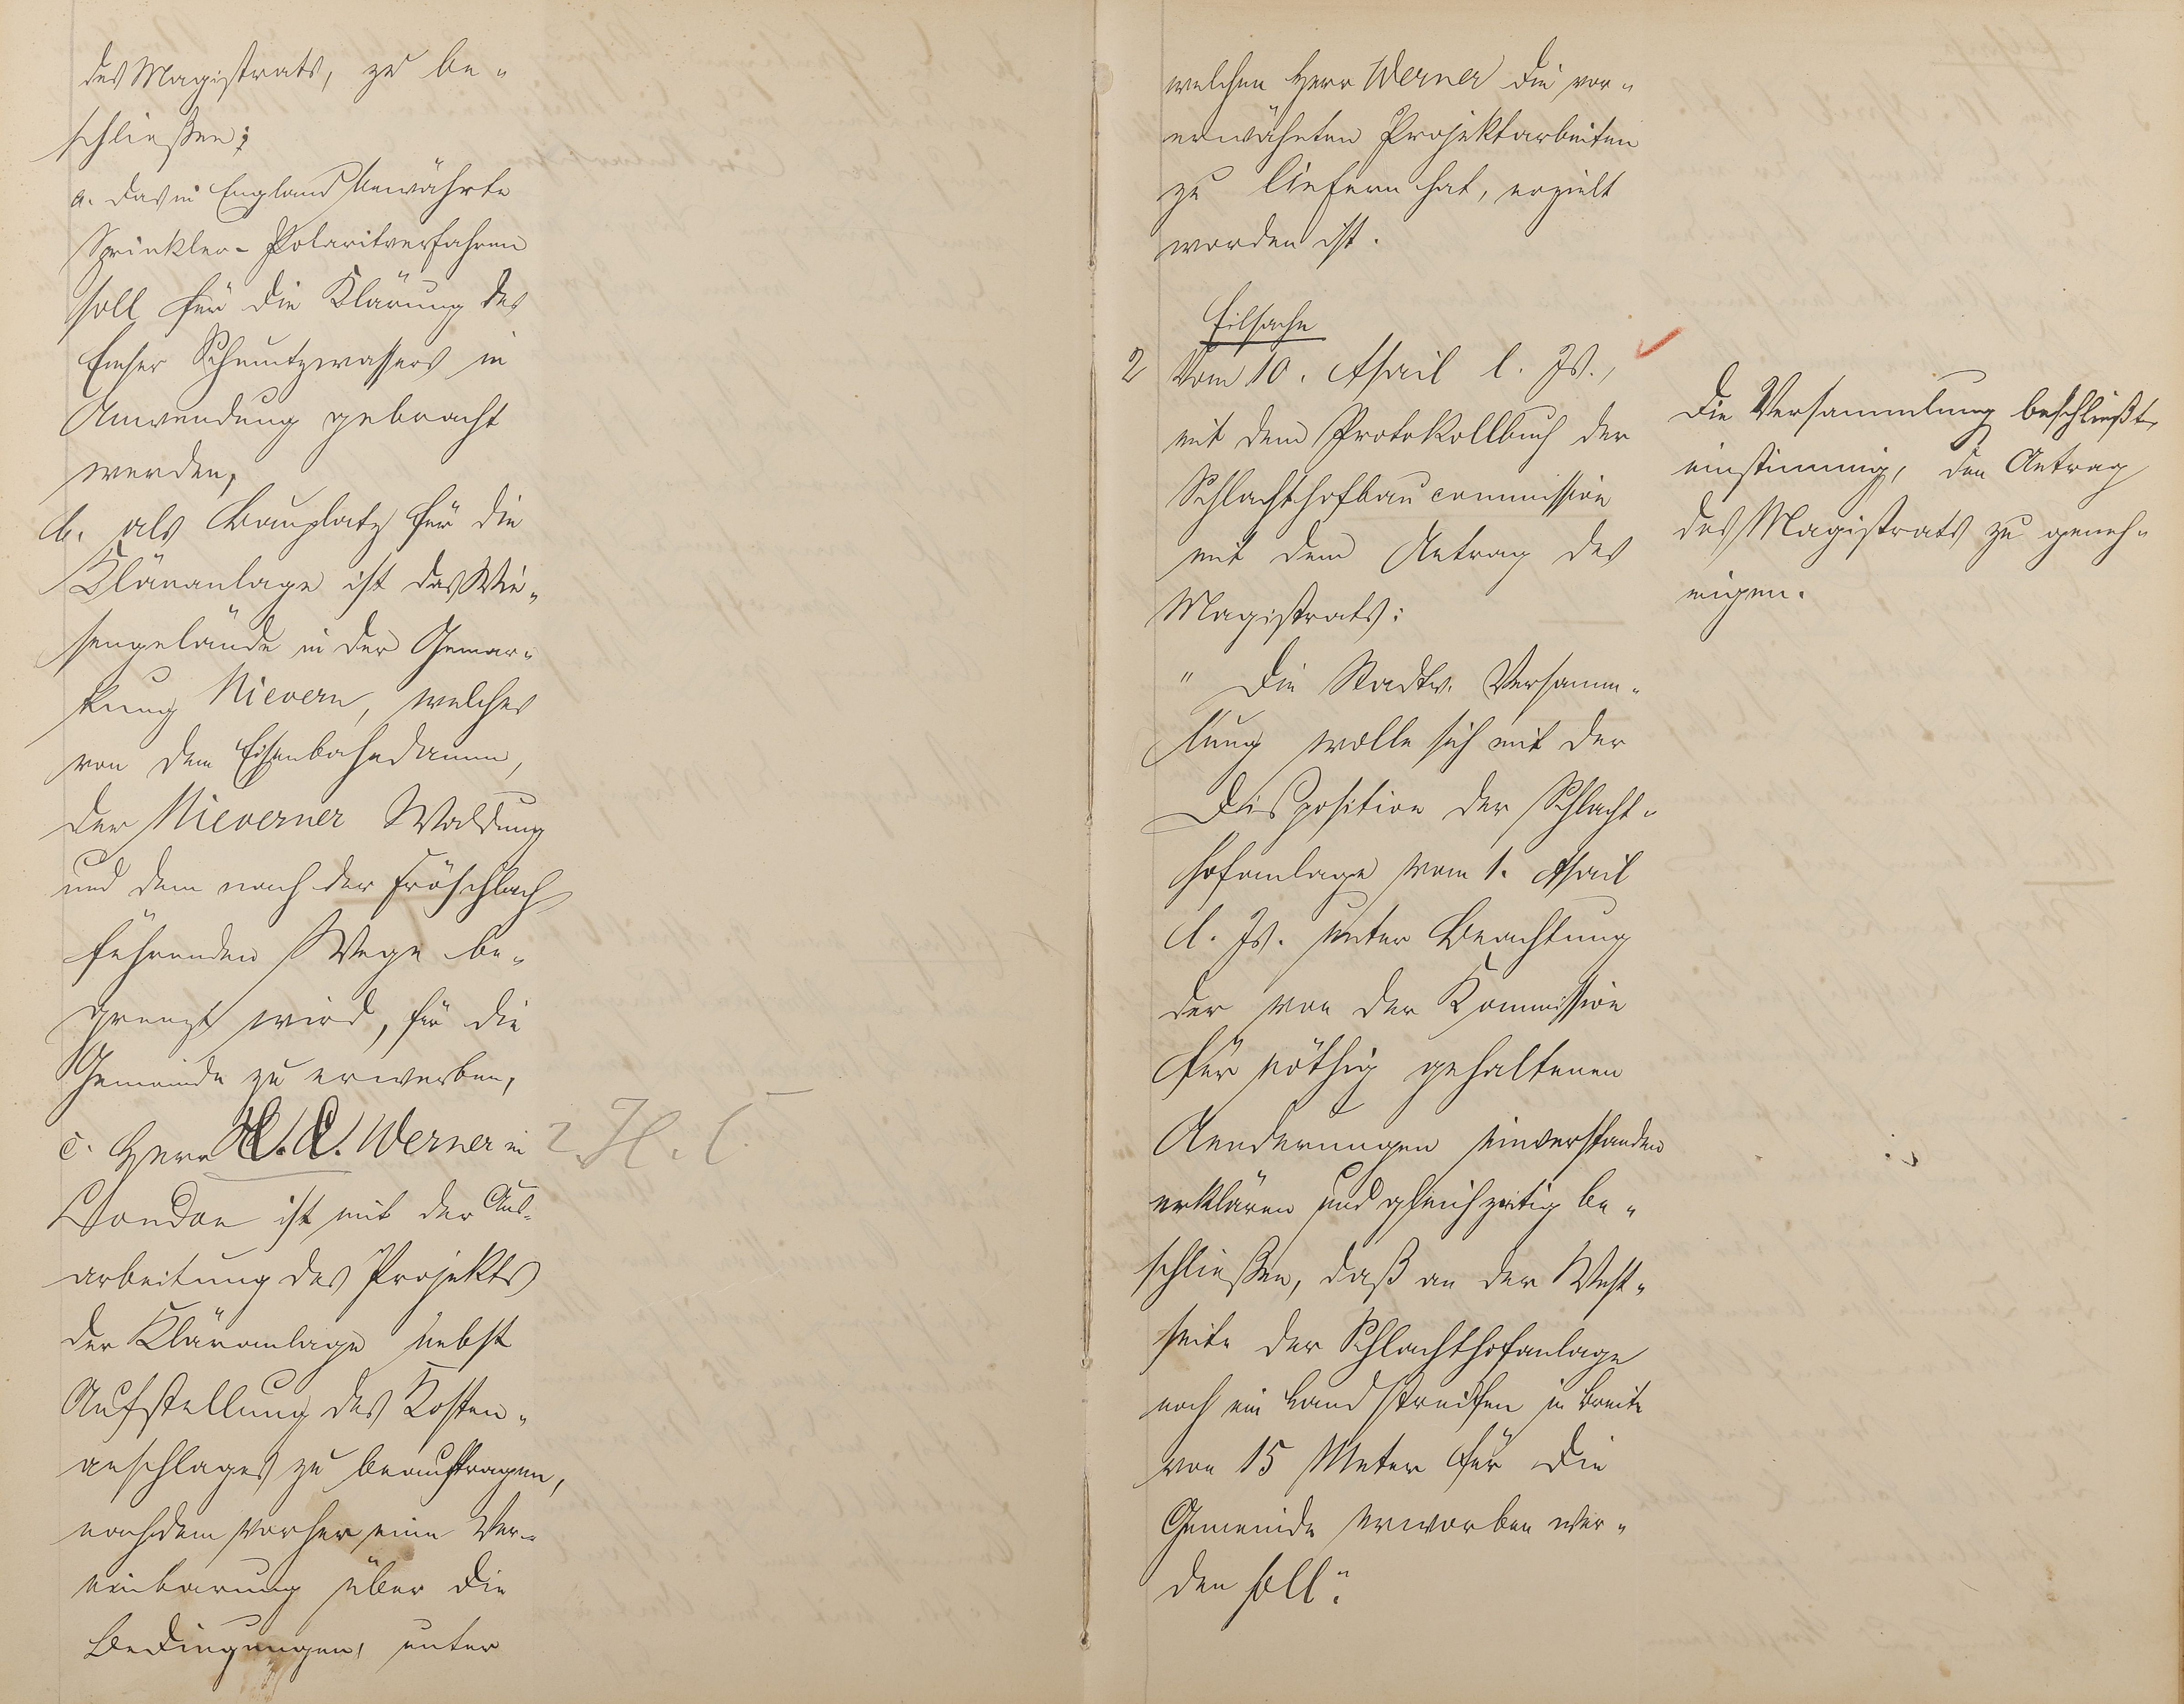 des Magistrats, zu be-
schließen:
a. das in England bewährte
Sprinkler-Polaritverfahren
soll für die Klärung des
Emser Schmutzwassers in
Anwendung gebracht
werden,
b. als Bauplatz für die
Kläranlage ist das Wie-
sengelände in der Gemar-
kung Nievern, welches
von dem Eisenbahndamm,
der Nieverner Waldung
und dem nach der Fröschlach
führenden Wege be-
grenzt wird, für die
Gemeinde zu erwerben,
c. Herr H. C. Werner in
? H. C.
London ist mit der Aus-
arbeitung des Projekts
der Kläranlage nebst
Aufstellung des Kosten-
anschlages zu beauftragen,
nachdem vorher eine Ver-
einbarung über die
Bedingungen, unter
welchen Herr Werner die vor-
erwähnten Projektarbeiten
zu liefern hat, erzielt
worden ist.
Eilsache
2 Vom 10. April l. Js.,
mit dem Protokollbuch der
Schlachthofbaucommission
mit dem Antrag des
Magistrats:
" Die Stadtv. Versamm-
lung wolle sich mit der
Disposition der Schlacht-
hofanlage vom 1. April
l. Js. unter Beachtung
der von der Kommission
für nöthig gehaltenen
Aenderungen einverstanden
erklären und gleichzeitig be-
schließen, daß an der West-
seite der Schlachthofanlage
noch ein Landstreifen in Breite
von 15 Meter für die
Gemeinde erworben wer-
den soll."
Die Versammlung beschließt
einstimmig, den Antrag
des Magistrats zu geneh-
migen.